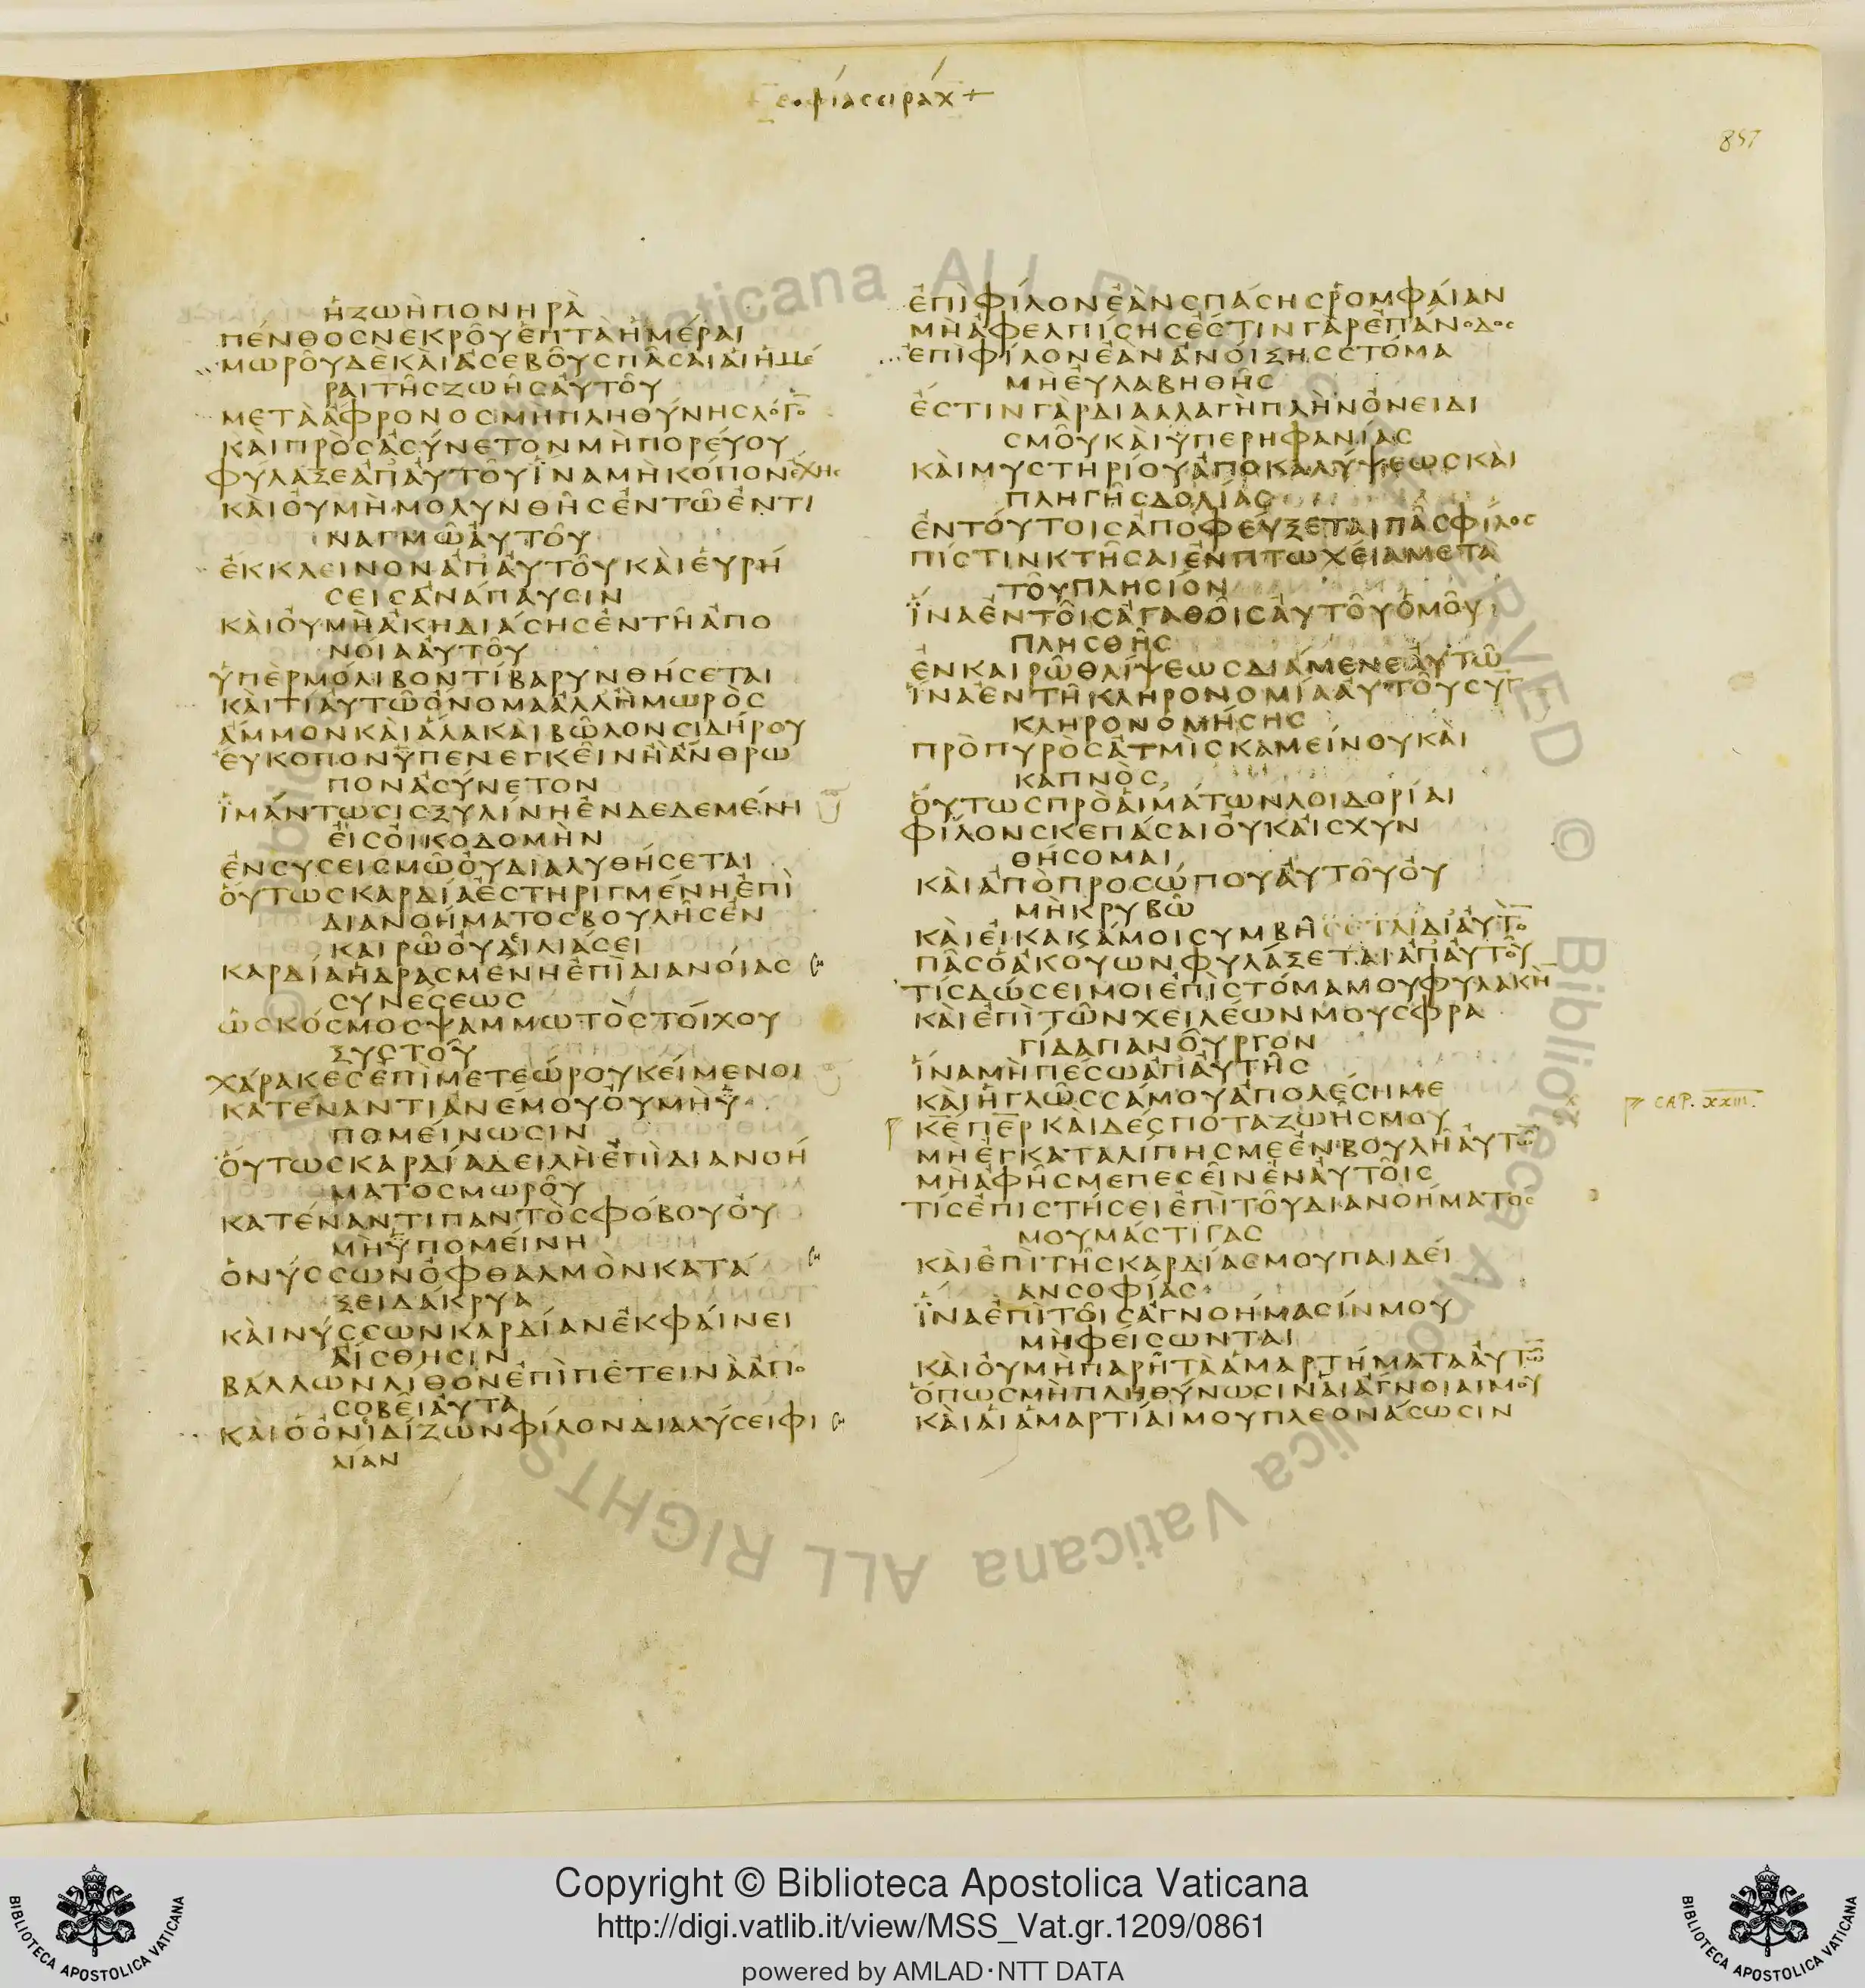 σοφία σειράχ +
857
ἡζωὴπονηρὰ
πένθοσνεκροῦἑπτὰἡμέραι
μωροῦδεκαὶἀσεβοῦςπᾶσαιαἱἡμέ
ραιτῆςζωῆςαὐτοῦ
μετὰἄφρονοςμὴπληθύνηςλόγο̅
καὶπρὸςἀσύνετονμὴπορεύου
φύλαξεἀπ᾽αὐτοῦἵναμὴκόπονἔχης
καὶοὐμὴμολυνθῆςἐντῶἐντι
ναγμῶαὐτοῦ
ἔκκλεινονἀπ᾽αὐτοῦκαὶεὑρή
σειςἀνάπαυσιν
καὶοὐμὴἀκηδιάσηςἐντῆἀπο
νοίααὐτοῦ
ὑπὲρμόλιβοντίβαρυνθήσεται
καὶτίαὐτῶὄνομαἀλλ᾽ἢμωρὸς
ἄμμονκαὶἅλακαὶβῶλονσιδήρου
εὔκοπονὑπενεγκεῖνἢἄνθρω
πονἀσύνετον
ἱμάντωσιςξυλίνηἐνδεδεμένη
εἰςοἰκοδομὴν
ἐνσυσεισμῶοὐδιαλυθήσεται
οὕτωςκαρδίαἐστηριγμένηἐπὶ
διανοήματοςβουλῆςἐν
καιρῶοὐδειλιάσει
καρδίαἡδρασμένηἐπὶδιανοίας
συνέσεως
ὡςκόσμοςψαμμωτὸςτοίχου
ξυστοῦ
χάρακεςἐπὶμετεώρουκείμενοι
κατέναντιἀνέμουοὐμὴὑ
πομείνωσιν
οὕτωςκαρδίαδειλὴἐπὶδιανοή
ματοςμωροῦ
κατέναντιπαντὸςφόβουοὐ
μὴὑπομείνη
ὁνύσσωνὀφθαλμὸνκατά
ξειδάκρυα
καὶνύσσωνκαρδίανἐκφαίνει
αἴσθησιν
βάλλωνλίθονἐπὶπετεινὰἀπο
σοβεῖαὐτα
καὶὁὀνιδίζωνφίλονδιαλύσειφι
λίαν
ἐπὶφίλονἐὰνσπάσηςῥομφαίαν
μὴἀφελπίσηςἔστινγὰρἐπάνοδος
ἐπὶφίλονἐὰνἀνοίξηςστόμα
μὴεὐλαβηθῆς
ἔστινγὰρδιαλλαγὴπλὴνὀνειδι
σμοῦκαὶὑπερηφανίας
καὶμυστηρίουἀποκαλύψεωςκαὶ
πληγῆςδολίας
ἐντούτοιςἀποφεύξεταιπᾶςφίλος
πίστινκτῆσαιἐνπτωχείαμετὰ
τοῦπλησίον
ἵναἐντοῖςἀγαθοῖςαὐτοῦὁμοῦ
πλησθῆς
ἐνκαιρῶθλίψεωςδιάμενεαὐτῶ
ἵναἐντῆκληρονομίααὐτοῦσυγ
κληρονομήσης
πρὸπυρὸςἀτμὶςκαμείνουκαὶ
καπνὸς
οὕτωςπρὸαἱμάτωνλοιδορίαι
φίλονσκεπάσαιοὐκαἰσχυν
θήσομαι
καὶἀπὸπροσώπουαὐτοῦοὐ
μὴκρυβῶ
καὶεἰκακάμοισυμβήσεταιδι᾽αὐτὸ̅
πᾶςὁἀκούωνφυλάξεταιἀπ᾽αὐτοῦ
τίςδώσειμοιἐπὶστόμαμουφυλακὴ̅
καὶἐπὶτῶνχειλέωνμουσφρα
γίδαπανοῦργον
ἵναμὴπέσωἀπ᾽αὐτῆς
καὶἡγλῶσσάμουἀπολέσημε
κ̅ε̅π̅ε̅ρ̅καὶδέσποταζωῆςμου
μὴἐγκαταλίπηςμεἐνβουλῆαὐτῶ̅
μὴἀφῆςμεπεσεῖνἐναὐτοῖς
τίςἐπιστήσειἐπὶτοῦδιανοήματος
μουμάστιγας
καὶἐπὶτῆςκαρδίαςμουπαιδεί
ανσοφίας
ἵναἐπὶτοῖςἀγνοήμασίνμου
μὴφείσωνται
καὶοὐμὴπαρῆτὰἁμαρτήματααὐτῶ̅
ὅπωςμὴπληθύνωσιναἱἄγνοιαίμου
καὶαἱἁμαρτίαιμουπλεονάσωσιν
CAP. XXIII.
Copyright © Biblioteca Apostolica Vaticana
http://digi.vatlib.it/view/MSS_Vat.gr.1209/0861
powered by AMLAD·NTT DATA
BIBLIOTECA APOSTOLICA VATICANA
BIBLIOTECA APOSTOLICA VATICANA